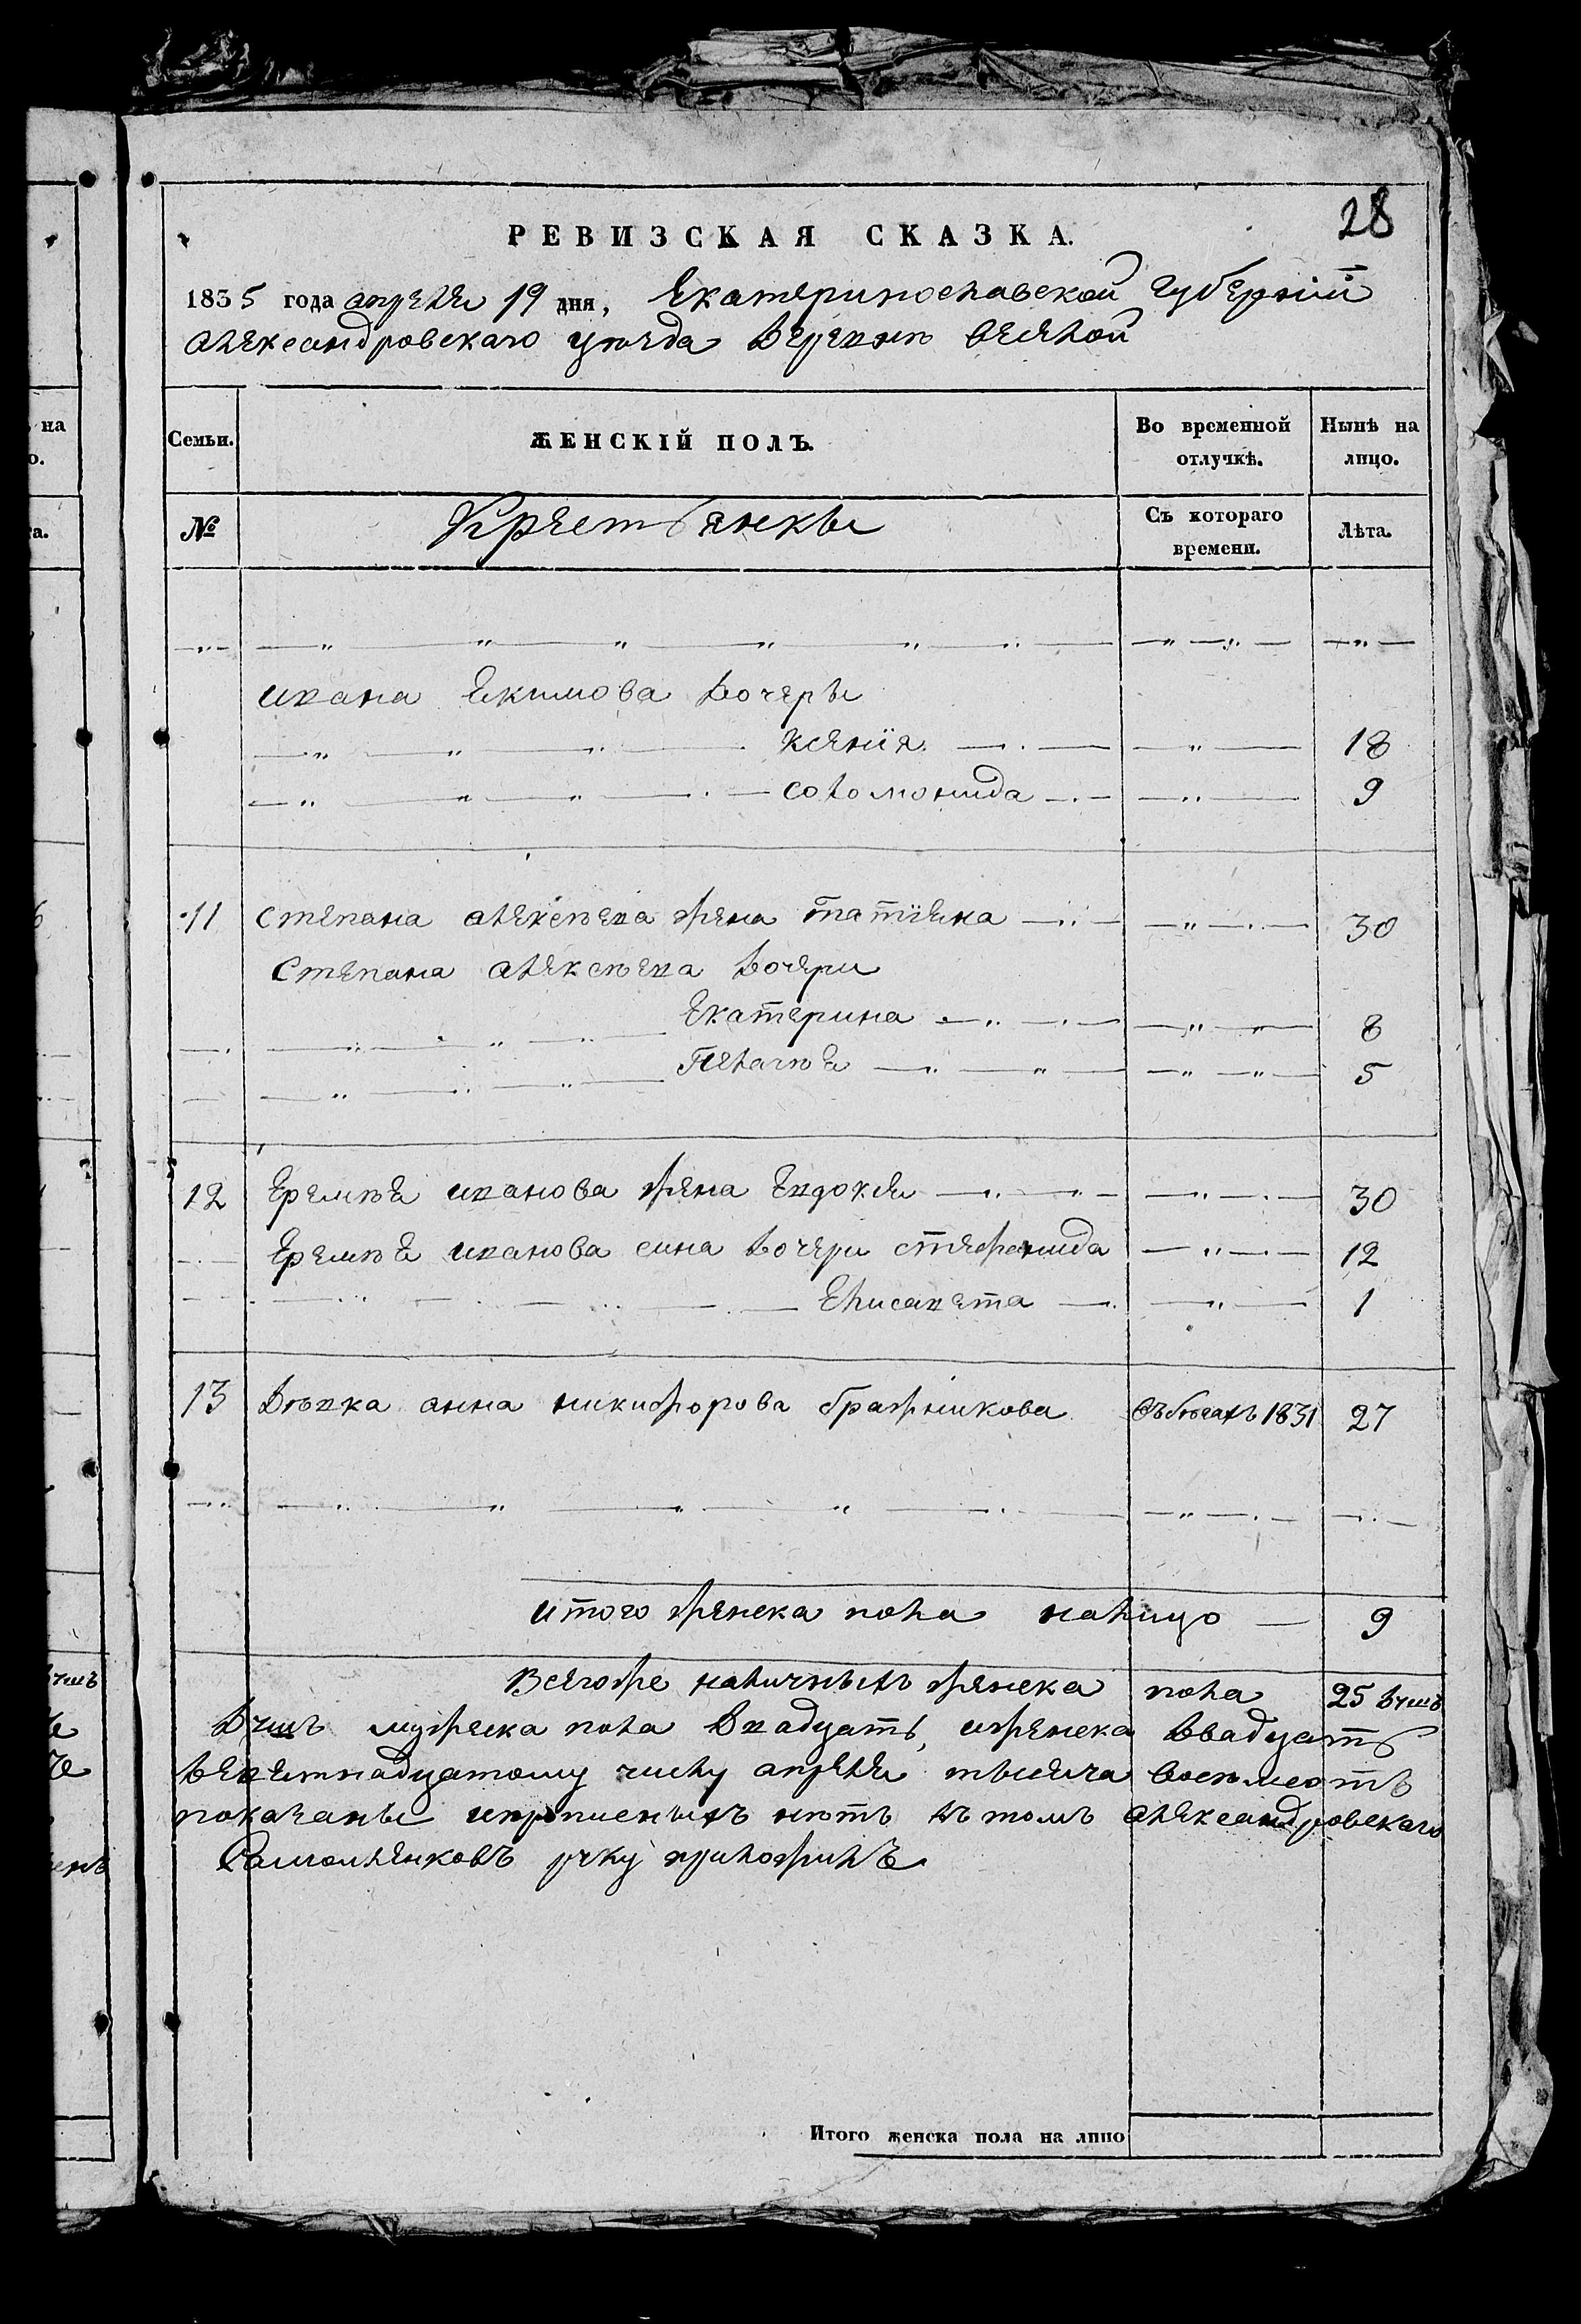 на
о.
та.
28
РЕВИЗСКАЯ СКАЗКА.
1835 года апреля 19 дня, Екатеринославской губернiй
александровскаго уезда Деревнѣ веселой
Семьи. ЖЕНСКІЙ ПОЛЪ. Во временной отлучкѣ. Нынѣ на лицо.
№ Крестьянкы Съ котораго времени. Лѣта.
ивана Екимова дочеры
ксенiя 18
соломонида 9
11 степана алексѣева жена татiена 30
Степана алексѣева дочери
Екатерина 8
Пелагѣе 5
12 Еремѣе иванова жена Евдокея 30
Еремѣе иванова сина дочери стефанида 12
Елисавета 1
13 Дѣвка анна никифорова бражникова Въбѣгахъ 1831 27
итого женска пола налицо 9
Всегоже наличныхъ женска пола 25 душъ
Душъ мужеска пола Двадцать, иженска двадцать
деветнадцатому числу апреля тысяча восѣмсотъ
показаны ипрописеныхъ нѣтъ въ томъ александровскаго
Самойленковъ руку приложилъ
Итого женска пола на лицо